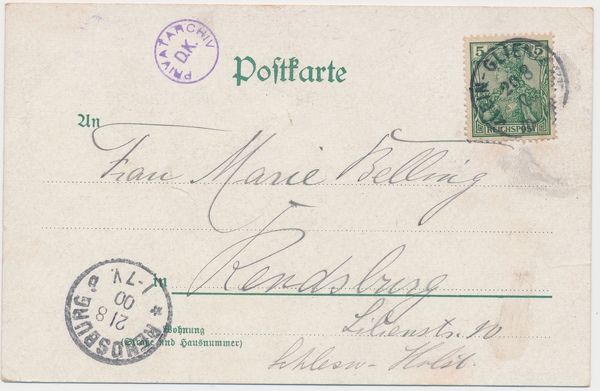 PRIVATARCHIV
D.K.
Postkarte
5 5
REICHSPOST
20 8
An
Frau Marie Belling
in Rendsburg
RENDSBURG
21 8
00
1-7 V.
Wohnung
(Straße und Hausnummer)
Lilienstr. 10
Schlesw-Holst.